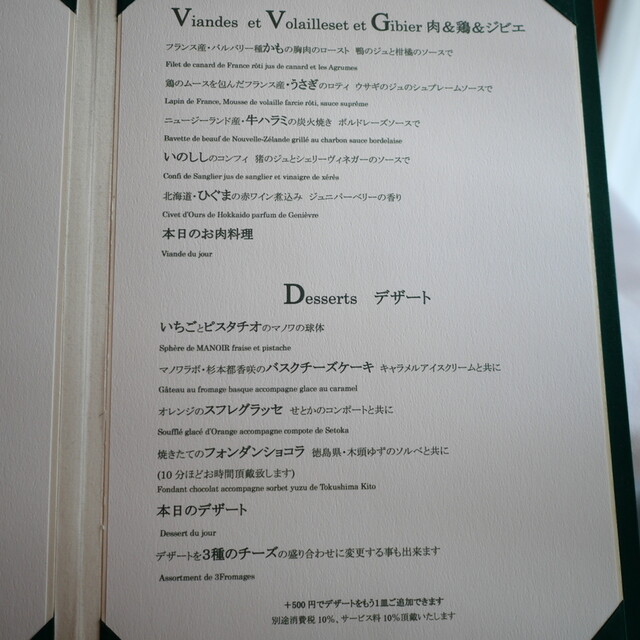 Viandes et Volailleset et Gibier 肉&鶏&ジビエ
フランス産・バルバリー種かもの胸肉のロースト 鴨のジュと柑橘のソースで
Filet de canard de France rôti jus de canard et les Agrumes
鶏のムースを包んだフランス産・うさぎのロティ ウサギのジュのシュプレームソースで
Lapin de France, Mousse de volaille farcie rôti, sauce suprême
ニュージーランド産・牛ハラミの炭火焼き ボルドレーズソースで
Bavette de beauf de Nouvelle-Zélande grillé au charbon sauce bordelaise
いのししのコンフィ 猪のジュとシェリーヴィネガーのソースで
Confi de Sanglier jus de sanglier et vinaigre de xérès
北海道・ひぐまの赤ワイン煮込み ジュニパーベリーの香り
Civet d'Ours de Hokkaido parfum de Genièvre
本日のお肉料理
Viande du jour
Desserts デザート
いちごとピスタチオのマノワの球体
Sphère de MANOIR fraise et pistache
マノワラボ・杉本都香咲のバスクチーズケーキ キャラメルアイスクリームと共に
Gâteau au fromage basque accompagne glace au caramel
オレンジのスフレグラッセ せとかのコンポートと共に
Soufflé glacé d'Orange accompagne compote de Setoka
焼きたてのフォンダンショコラ 徳島県・木頭ゆずのソルベと共に
(10分ほどお時間頂戴致します)
Fondant chocolat accompagne sorbet yuzu de Tokushima Kito
本日のデザート
Dessert du jour
デザートを3種のチーズの盛り合わせに変更する事も出来ます
Assortment de 3Fromages
+500円でデザートをもう1皿ご追加できます
別途消費税10%、サービス料10%頂戴いたします